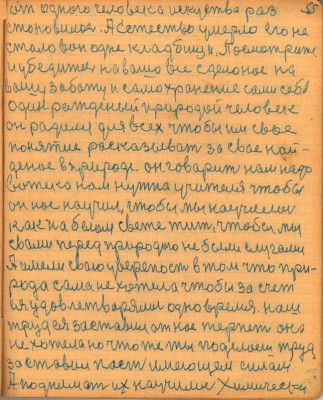 от одного человека искуства раз
становилое. А естество умерло его не
стало вон одне кладбищи. Посмотрите
и убедитес на вашо все сделоное на
вашу заботу и самохранение сами себя
один рожденый природой человек
он родилси для всех чтобы им свое
понятие расказыват за свое най-
деное в природе. он говорит нам надо
нам нужна учителя чтобы
он нас научил, чтобы мы научилис
как на белом свете жит, чтобы мы
сваими перед природаю не были слугами
А имели свою увереност в том что при-
рода сама не хотела чтобы за счет
ея удовлетворями одно время. наш
труд ея заставил от нас терпет она
не хотела но что же ты поделаеш труд
заставил паст имеющем силам
А поднимат их научилис Химическая